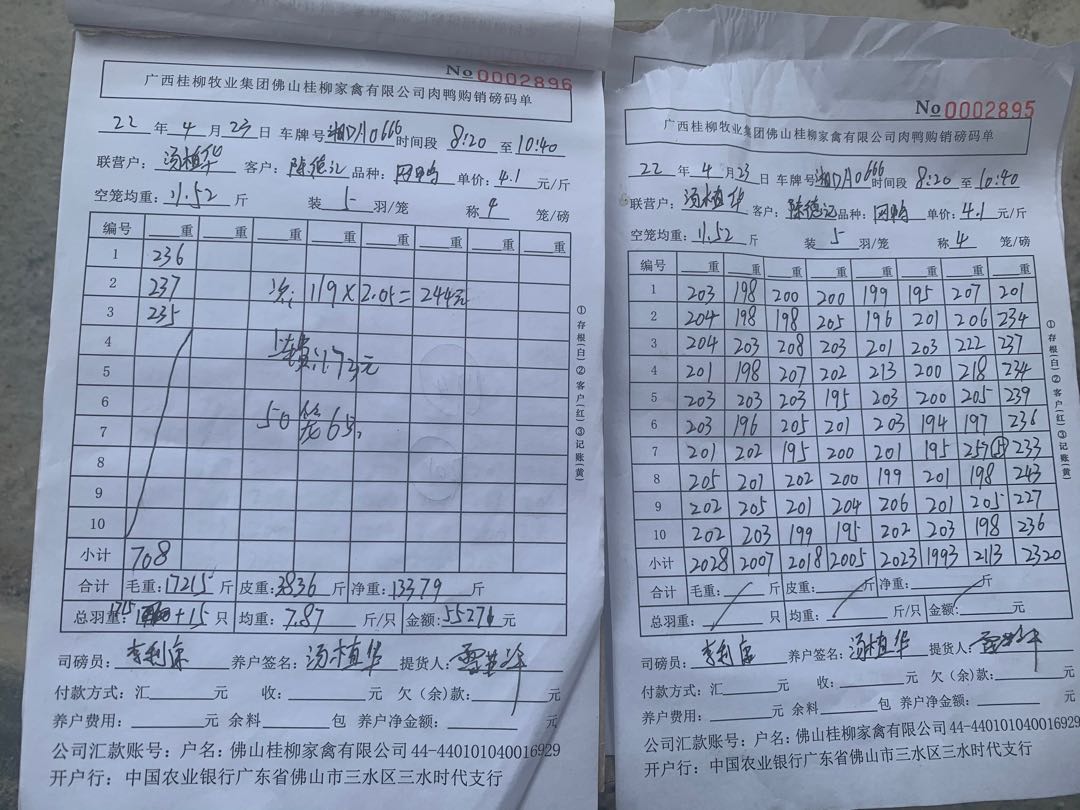 No 0002896
广西桂柳牧业集团佛山桂柳家禽有限公司肉鸭购销磅码单
22 年 4 月 23 日 车牌号 湘DA0666 时间段 8:20 至 10:40
联营户: 汤植华 客户: 陈德记 品种: 单价: 4.1 元/斤
空笼均重: 11.52 斤 装 5 羽/笼 称 4 笼/磅
编号 重 重 重 重 重 重 重 重
1 236
2 237 119×2.05=244元
3 235
4 173元
5
6 50 笼 6
7
8
9
10
小计 708
合计 毛重: 17215 斤 皮重: 3836 斤 净重: 13379 斤
总羽重: 1715 +15 只 均重: 7.87 斤/只 金额: 55271 元
司磅员: 李利 养户签名: 汤植华 提货人:
付款方式: 汇 元 收: 元 欠(余)款: 元
养户费用: 元 余料 包 养户净金额: 元
公司汇款账号: 户名: 佛山桂柳家禽有限公司 44-440101040016929
开户行: 中国农业银行广东省佛山市三水区三水时代支行
①存根(白)②客户(红)③记账(黄)
No 0002895
广西桂柳牧业集团佛山桂柳家禽有限公司肉鸭购销磅码单
22 年 4 月 23 日 车牌号 湘DA0666 时间段 8:20 至 10:40
联营户: 汤植华 客户: 陈德记 品种: 单价: 4.1 元/斤
空笼均重: 11.52 斤 装 5 羽/笼 称 4 笼/磅
编号 重 重 重 重 重 重 重 重
1 203 198 200 200 199 195 207 201
2 204 198 198 205 196 201 206 234
3 204 203 208 203 201 203 222 237
4 201 198 207 202 213 200 218 234
5 203 203 203 195 203 200 205 239
6 203 196 205 201 203 194 197 236
7 201 202 195 200 201 195 257 233
8 205 201 202 200 199 201 198 243
9 202 205 201 204 206 201 205 227
10 202 203 199 195 202 203 198 236
小计 2028 2007 2018 2005 2023 1993 2113 2320
合计 毛重: 斤 皮重: 斤 净重: 斤
总羽重: 只 均重: 斤/只 金额: 元
司磅员: 李利 养户签名: 汤植华 提货人:
付款方式: 汇 元 收: 元 欠(余)款: 元
养户费用: 元 余料 包 养户净金额: 元
公司汇款账号: 户名: 佛山桂柳家禽有限公司 44-440101040016929
开户行: 中国农业银行广东省佛山市三水区三水时代支行
①存根(白)②客户(红)③记账(黄)